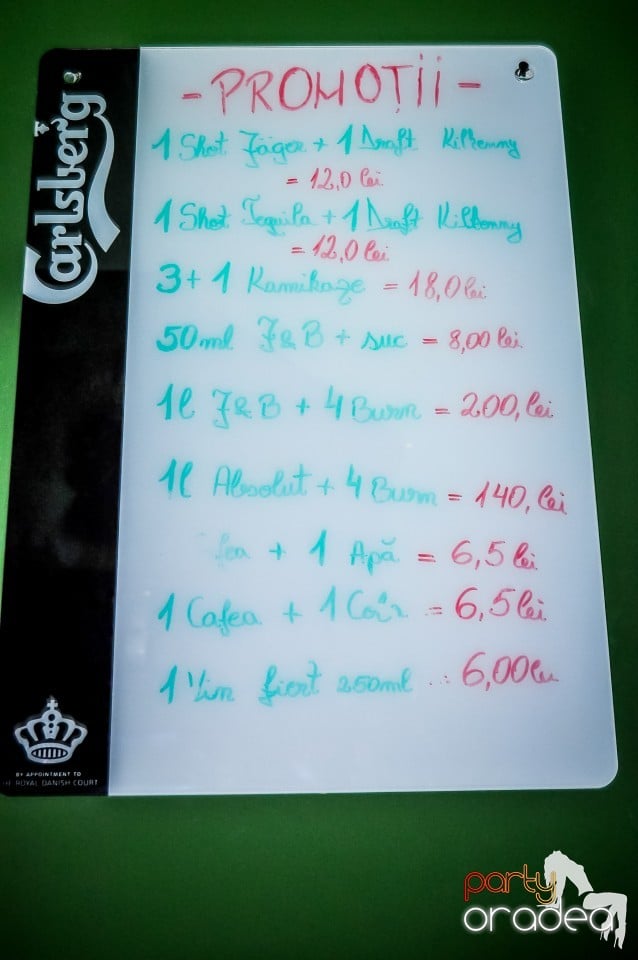 Carlsberg
- PROMOȚII -
1 Shot Jäger + 1 Draft Kilkenny
= 12,0 lei
1 Shot Tequila + 1 Draft Kilkenny
= 12,0 lei
3 + 1 Kamikaze = 18,0 lei
50ml J&B + suc = 8,00 lei
1l J&B + 4 Burn = 200, lei
1l Absolut + 4 Burn = 140, lei
fea + 1 Apă = 6,5 lei
1 Cafea + 1 = 6,5 lei
1 Vin fiert 250ml 6,00 lei
BY APPOINTMENT TO
THE ROYAL DANISH COURT
party
oradea